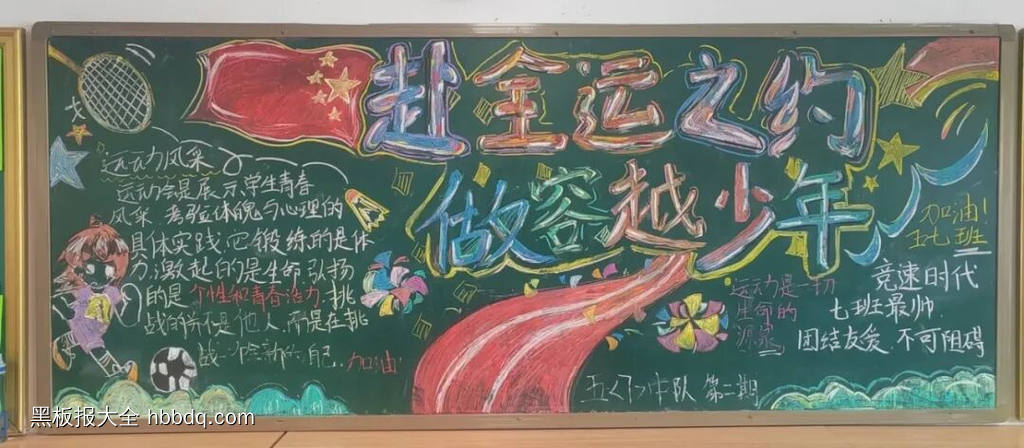 赴全运之约
做容越少年
运动风采
运动会是展示学生青春
风采 考验体魄与心理的
具体实践 它锻练的是体
力 激起的是生命 弘扬
的是 个性和青春活力 挑
战的并不是他人 而是在挑
战一个全新的自己 加油!
加油!
五七班
运动是一切
生命的
源泉
竞速时代
七班最帅
团结友爱 不可阻碍
五<7>中队 第一期
黑板报大全 hbbdq.com